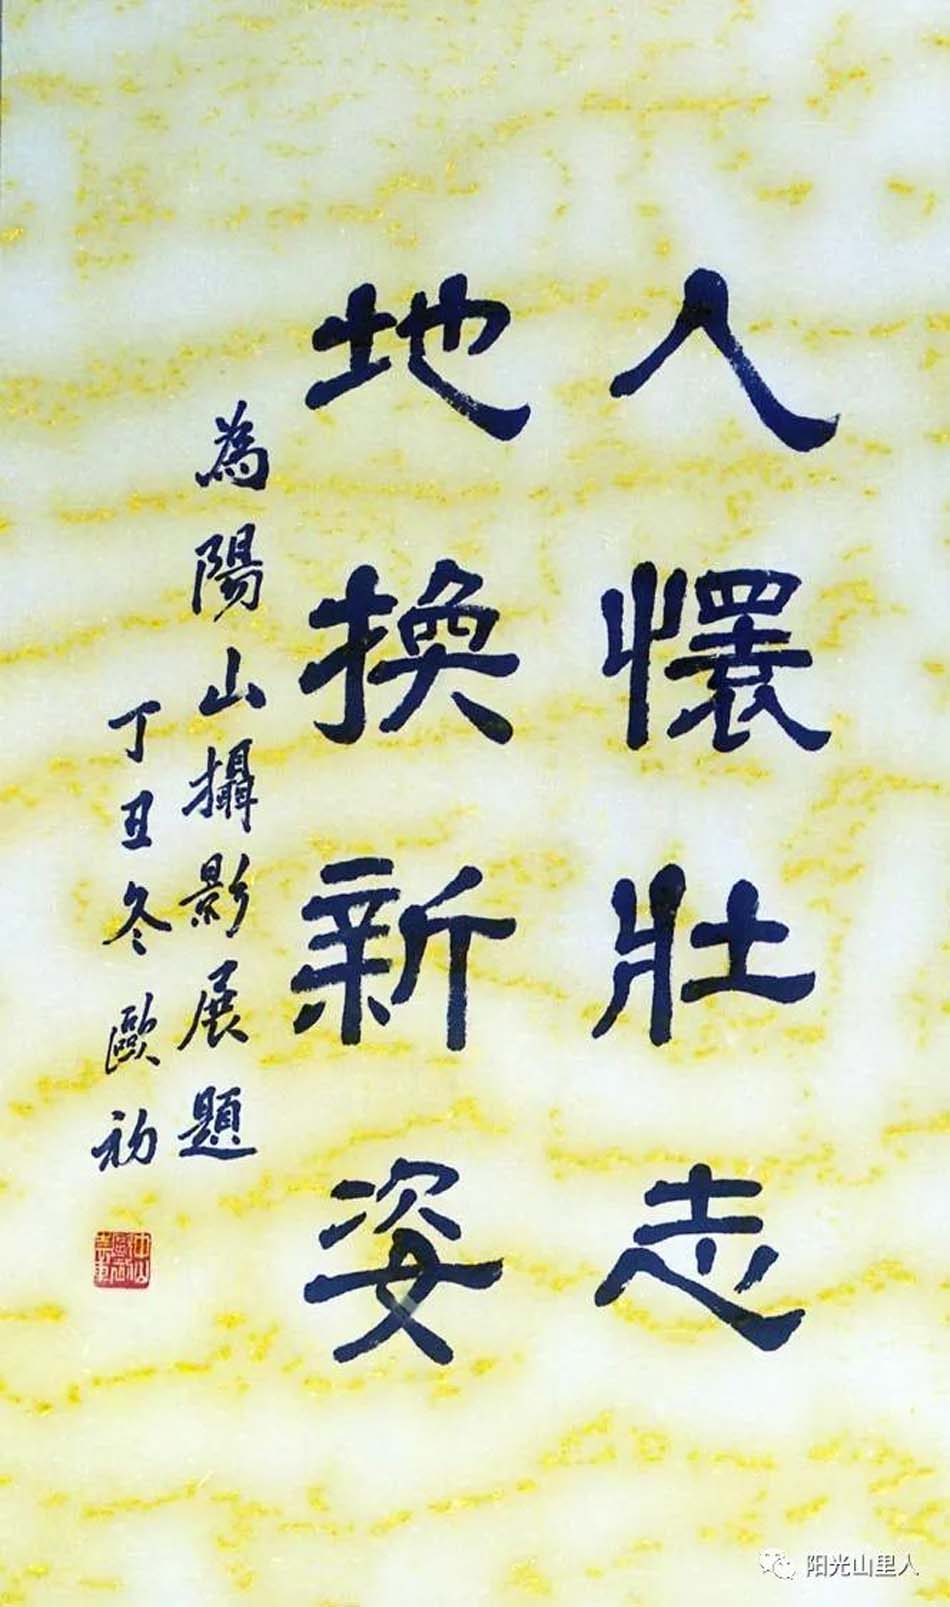 人懷壯志
地換新姿
為陽山攝影展題
丁丑冬歐初
阳光山里人